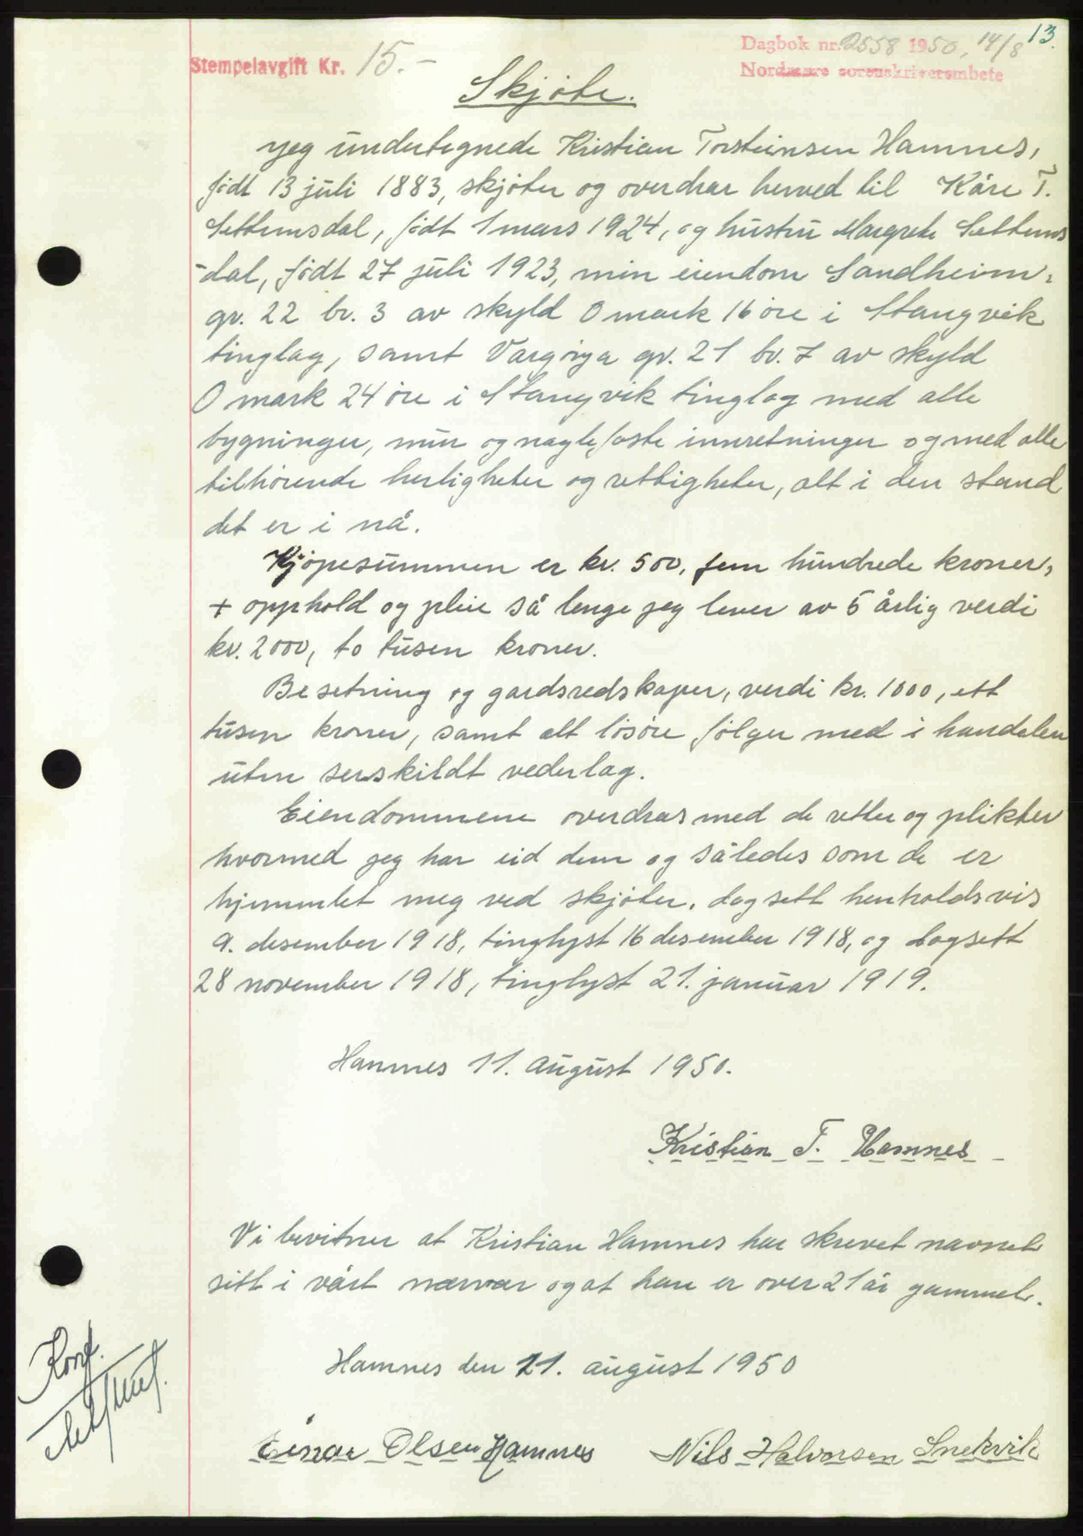 13.
Dagbok nr. 2558 1950, 14/8
Nordmøre sorenskriverembete
Stempelavgift Kr. 15.-
Skjøte.
Jeg undertegnede Kristian Torsteinsen Hamnes,
født 13 juli 1883, skjøter og overdrar herved til Kåre T.
Settemsdal, født 1 mars 1924, og hustru Margrete Settems
-dal, født 27 juli 1923, min eiendom Sandheim,
gr. 22 br. 3 av skyld 0 mark 16 øre i Stangvik
tinglag, samt Vargøya gr. 21 br. 7 av skyld
0 mark 24 øre i Stangvik tinglag med alle
bygninger, mur og naglefaste innretninger og med alle
tilhørende herligheter og rettigheter, alt i den stand
det er i nå.
Kjøpesummen er kr. 500, fem hundrede kroner,
+ opphold og pleie så lenge jeg lever av 5 årlig verdi
kr. 2000, to tusen kroner.
Besetning og gardsredskaper, verdi kr. 1000, ett
tusen kroner, samt alt løsøre følger med i handelen
uten serskildt vederlag.
Eiendommene overdras med de retter og plikter
hvormed jeg har eid dem og således som de er
hjemmlet meg ved skjøter, dagsett henholdsvis
9. desember 1918, tinglyst 16 desember 1918, og dagsett
28 november 1918, tinglyst 21. januar 1919.
Hamnes 11. august 1950.
Kristian T. Hamnes
Vi bevitner at Kristian Hamnes har skrevet navnet
sitt i vårt nærvær og at han er over 21 år gammel.
Hamnes den 11. august 1950
Einar Olsen Hamnes Nils Halvorsen Snekvik
Konf.